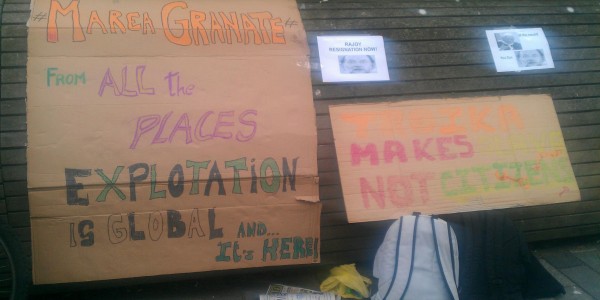 "MAREA GRANATE"
FROM ALL the
PLACES
EXPLOTATION
IS GLOBAL AND...
It's HERE!
RAJOY
RESIGNATION NOW!
TROIKA
MAKES
NOT CITIZENS